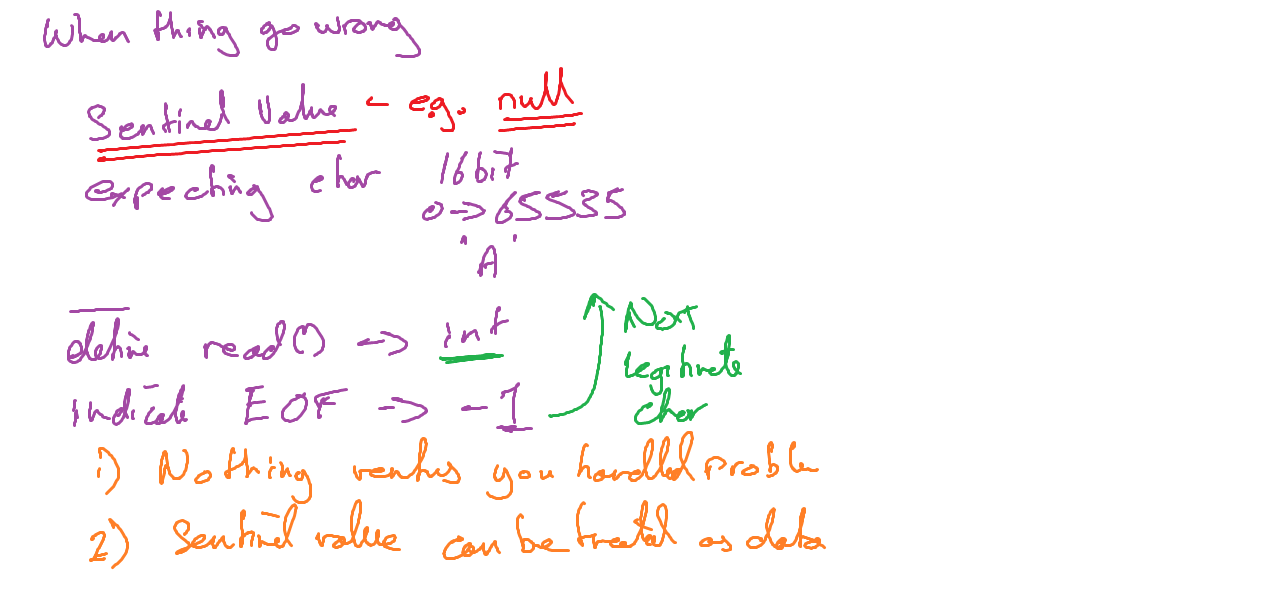 When thing go wrong
Sentinel Value ← e.g. null
expecting char 16 bit
0 -> 65535
'A'
define read() -> int
Not
legitimate
char
indicate EOF -> -1
1) Nothing verifies you handled problem
2) Sentinel value can be treated as data